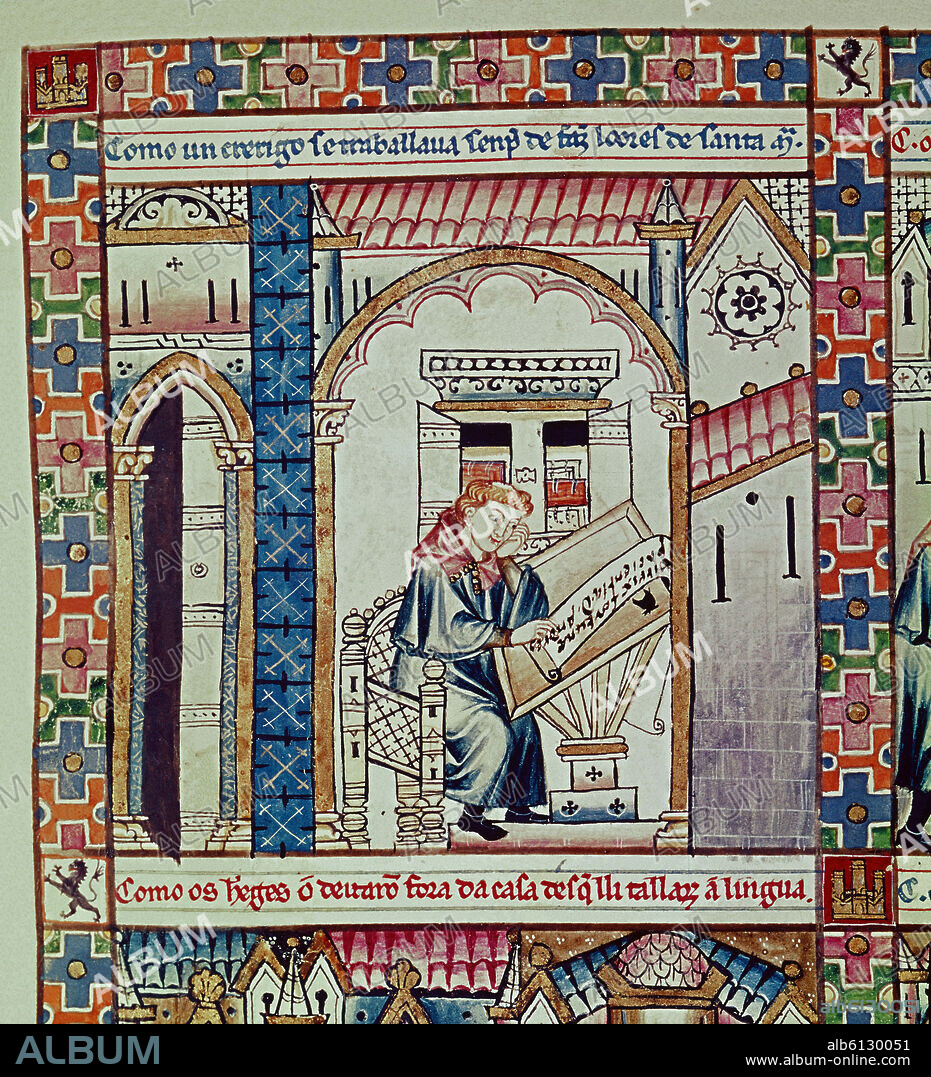 Como un crerigo se traballaua senp̃ de faz̃ loores de santa m̃.
C. o
Como os h̃eges õ deitarõ fora da casa desq̃ lli tallarõ a lingua.
C.
ALBUM
alb6130051
www.album-online.com